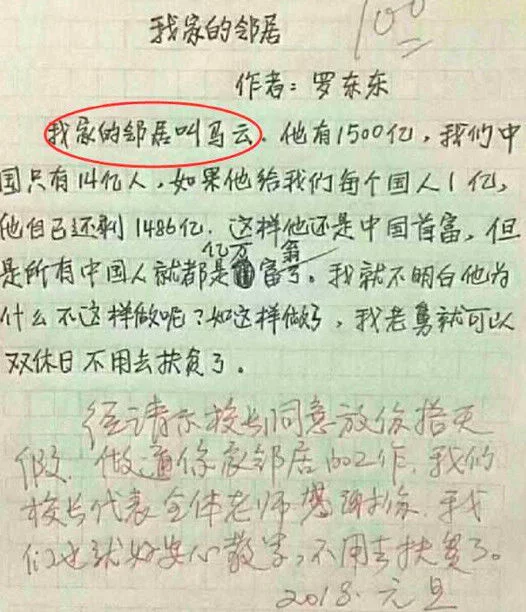 100
我家的邻居
作者：罗东东
我家的邻居叫马云。他有1500亿，我们中
国只有14亿人，如果他给我们每个国人1亿，
他自己还剩1486亿。这样他还是中国首富，但
是所有中国人就都是亿万富翁了。我就不明白他为
什么不这样做呢？如这样做了，我老舅就可以
双休日不用去扶贫了。
经请示校长同意放你拾天
假，做通你家邻居的工作，我们
校长代表全体老师感谢你，我
们也就好安心教学，不用去扶贫了。
2018.元旦